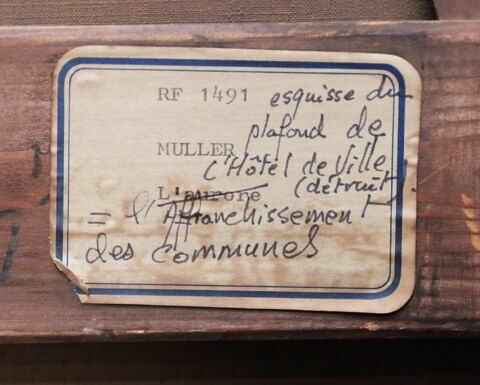 RF 1491 esquisse du
plafond de
MULLER
L'Hôtel de Ville
L'aurore (détruit).
= l'Affranchissement
des communes